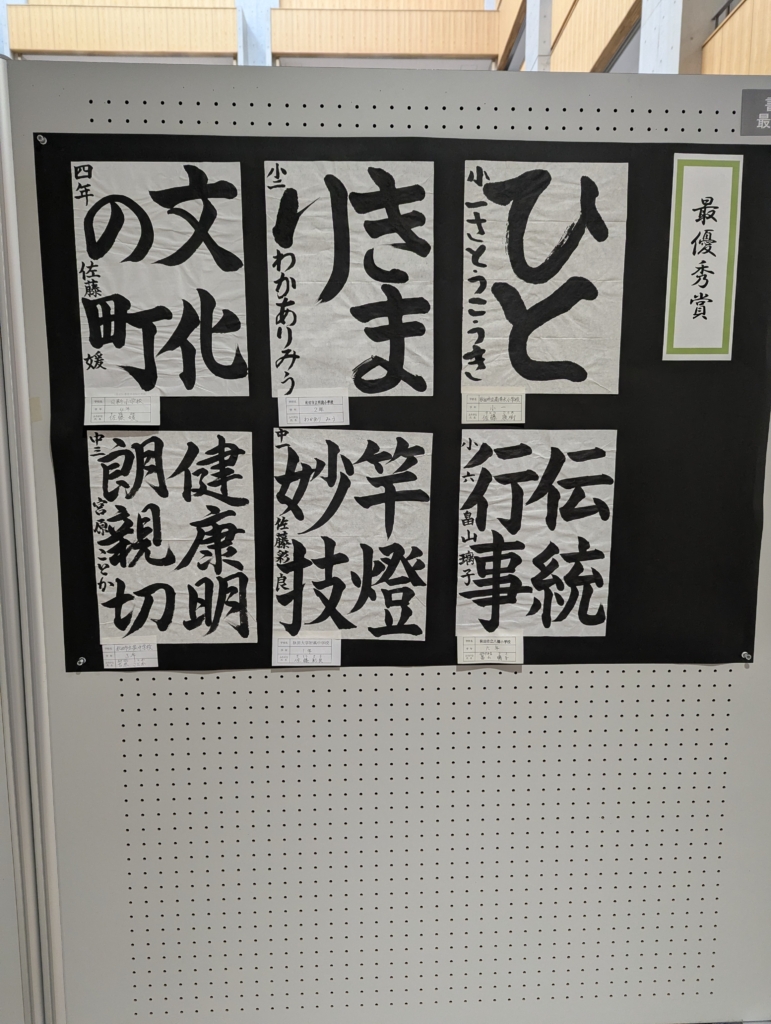 最優秀賞
ひと
小一さとうこうき
きま
り
小二
わかありみう
文化
の町
四年
佐藤
媛
伝統
行事
小六
畠山璃子
竿燈
妙技
中一
佐藤彩良
健康明
朗親切
中三
宮原ことか